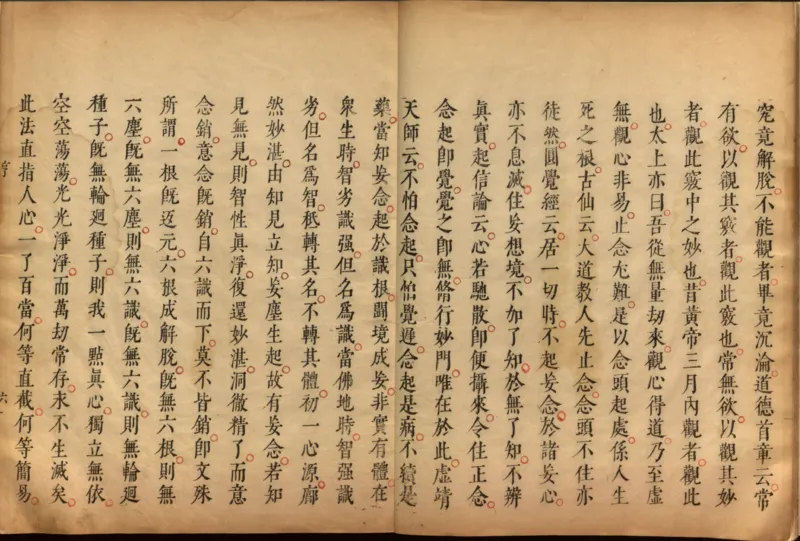 究竟解脫不能觀者畢竟沉淪道德首章云常
有欲以觀其竅者觀此竅也常無欲以觀其妙
者觀此竅中之妙也昔黃帝三月內觀者觀此
也太上亦曰吾從無量劫來觀心得道乃至虛
無觀心非易止念尤難是以念頭起處係人生
死之根古仙云大道教人先止念念頭不住亦
徒然圓覺經云居一切時不起妄念於諸妄心
亦不息滅住妄想境不加了知於無了知不辨
眞實起信論云心若馳散卽便攝來令住正念
念起卽覺覺之卽無修行妙門唯在於此虛靖
天師云不怕念起只怕覺遲念起是病不續是
藥當知妄念起於識根鬪境成妄非實有體在
衆生時智劣識强但名爲識當佛地時智强識
劣但名爲智秪轉其名不轉其體初一心源廓
然妙湛由知見立知妄塵生起故有妄念若知
見無見則智性眞淨復還妙湛洞徹精了而意
念銷意念旣銷自六識而下莫不皆銷卽文殊
所謂一根旣返元六根成解脫旣無六根則無
六塵旣無六塵則無六識旣無六識則無輪迴
種子旣無輪迴種子則我一點眞心獨立無依
空空蕩蕩光光淨淨而萬劫常存永不生滅矣
此法直指人心一了百當何等直截何等簡易